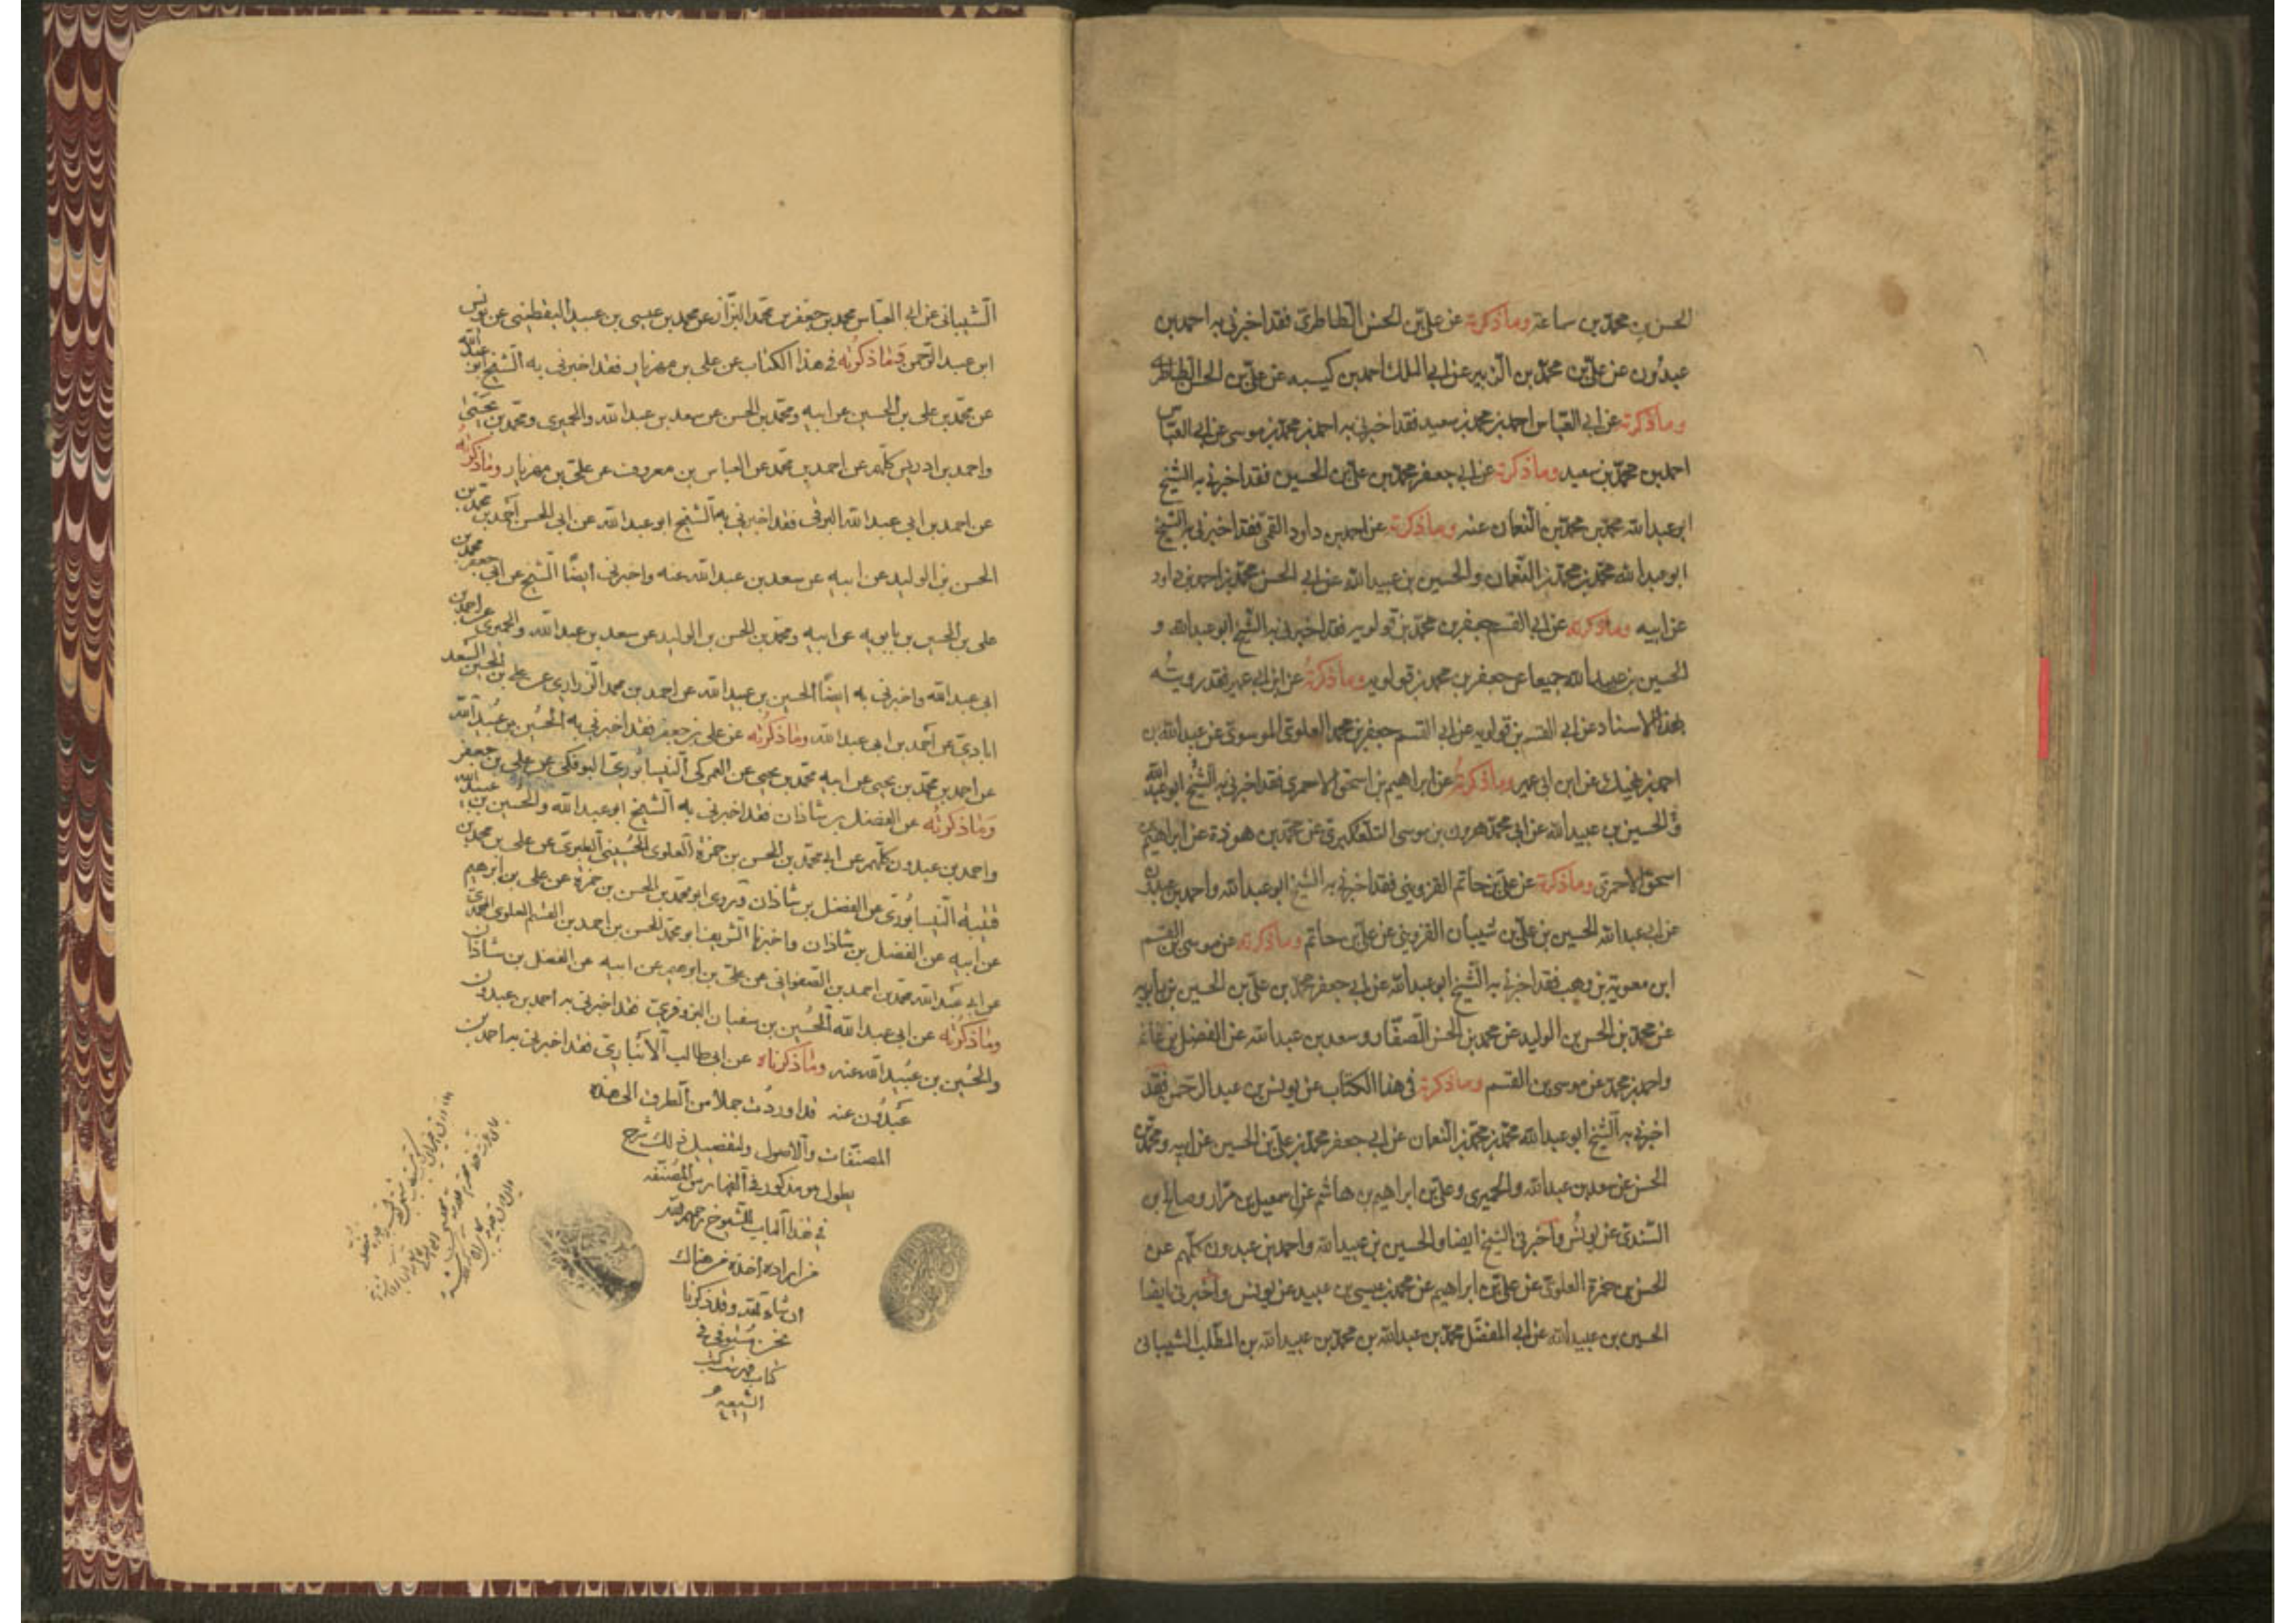 الحسن بن محمد بن سماعة وما ذكرته عن علي بن الحسن الطاطري فقد اخبرني به احمد بن
عبدون عن علي بن محمد بن الزبير عن ابي الملك احمد بن كيسبه عن علي بن الحسن الطاطري
وما ذكرته عن ابي العباس احمد بن محمد بن سعيد فقد اخبرني به احمد بن محمد بن موسى عن ابي العباس
احمد بن محمد بن سعيد وما ذكرته عن ابي جعفر محمد بن علي بن الحسين فقد اخبرني به الشيخ
ابو عبد الله محمد بن محمد بن النعمان عنه وما ذكرته عن احمد بن داود القمي فقد اخبرني به الشيخ
ابو عبد الله محمد بن محمد بن النعمان والحسين بن عبيد الله عن ابي الحسن محمد بن احمد بن داود
عن ابيه وما ذكرته عن ابي القسم جعفر بن محمد بن قولويه فقد اخبرني به الشيخ ابو عبد الله و
الحسين بن عبيد الله جميعا عن جعفر بن محمد بن قولويه وما ذكرته عن ابن ابي عمير فقد رويته
بهذا الاسناد عن ابي القسم بن قولويه عن ابي القسم جعفر بن محمد العلوي الموسوي عن عبيد الله بن
احمد بن نهيك عن ابن ابي عمير وما ذكرته عن ابراهيم بن اسحق الاحمري فقد اخبرني به الشيخ ابو عبد الله
والحسين بن عبيد الله عن ابي محمد هرون بن موسى التلعكبري عن محمد بن هوذة عن ابراهيم بن
اسحق الاحمري وما ذكرته عن علي بن حاتم القزويني فقد اخبرني به الشيخ ابو عبد الله واحمد بن عبدون
عن ابي عبد الله الحسين بن علي بن شيبان القزويني عن علي بن حاتم وما ذكرته عن موسى بن القسم
ابن معوية بن وهب فقد اخبرني به الشيخ ابو عبد الله عن ابي جعفر محمد بن علي بن الحسين بن بابويه
عن محمد بن الحسن بن الوليد عن محمد بن الحسن الصفار وسعد بن عبد الله عن الفضل بن غانم
واحمد بن محمد عن موسى بن القسم وما ذكرته في هذا الكتاب عن يونس بن عبد الرحمن فقد
اخبرني به الشيخ ابو عبد الله محمد بن محمد بن النعمان عن ابي جعفر محمد بن علي بن الحسين عن ابيه ومحمد بن
الحسن عن سعد بن عبد الله والحميري وعلي بن ابراهيم بن هاشم عن اسمعيل بن مرار وصالح بن
السندي عن يونس واخبرني الشيخ ايضا والحسين بن عبيد الله واحمد بن عبدون كلهم عن
الحسن بن حمزة العلوي عن علي بن ابراهيم عن محمد بن عيسى بن عبيد عن يونس واخبرني ايضا
الحسين بن عبيد الله عن ابي المفضل محمد بن عبد الله بن محمد بن عبيد الله بن المطلب الشيباني
الشيباني عن ابي العباس محمد بن جعفر بن محمد البزاز عن محمد بن عيسى بن عبيد اليقطيني عن يونس
ابن عبد الرحمن وما ذكرته في هذا الكتاب عن علي بن مهزيار فقد اخبرني به الشيخ ابو عبد الله
عن محمد بن علي بن الحسين عن ابيه ومحمد بن الحسن عن سعد بن عبد الله والحميري ومحمد بن يحيى
واحمد بن ادريس كلهم عن احمد بن محمد عن العباس بن معروف عن علي بن مهزيار وما ذكرته
عن احمد بن ابي عبد الله البرقي فقد اخبرني به الشيخ ابو عبد الله عن ابي الحسن احمد بن محمد بن
الحسن بن الوليد عن ابيه عن سعد بن عبد الله عنه واخبرني ايضا الشيخ عن ابي جعفر محمد بن
علي بن الحسين بن بابويه عن ابيه ومحمد بن الحسن بن الوليد عن سعد بن عبد الله والحميري عن احمد بن
ابي عبد الله واخبرني به ايضا الحسين بن عبيد الله عن احمد بن محمد الزراري عن علي بن الحسين السعد
ابادي عن احمد بن ابي عبد الله وما ذكرته عن علي بن جعفر فقد اخبرني به الحسين بن عبيد الله
عن احمد بن محمد بن يحيى عن ابيه محمد بن يحيى عن العمركي النيسابوري البوفكي عن علي بن جعفر
وما ذكرته عن الفضل بن شاذان فقد اخبرني به الشيخ ابو عبد الله والحسين بن عبيد الله
واحمد بن عبدون كلهم عن ابي محمد بن الحسن بن حمزة العلوي الحسيني الطبري عن علي بن محمد بن
قتيبة النيسابوري عن الفضل بن شاذان وروى ابو محمد بن الحسن بن حمزة عن علي بن ابرهيم
عن ابيه عن الفضل بن شاذان واخبرنا الشريف ابو محمد الحسن بن احمد بن القسم العلوي المحمدي
عن ابي عبد الله محمد بن احمد بن الصفواني عن علي بن ابرهيم عن ابيه عن الفضل بن شاذان
وما ذكرته عن ابي عبد الله الحسين بن سفيان البزوفري فقد اخبرني به احمد بن عبدون
والحسين بن عبيد الله عنه وما ذكرناه عن ابي طالب الانباري فقد اخبرني به احمد بن
عبدون عنه قد اوردت جملا من الطرق الى هذه
المصنفات والاصول ولتفصيل ذلك شرح
يطول هو مذكور في الفهارس المصنفه
في هذا الباب للشيوخ رحمهم الله
من اراده اخذه من هناك
ان شاء الله وقد ذكرنا
نحن مستوفى في
كتاب فهرست كتب
الشيعه